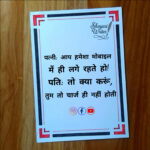 पत्नी: आप हमेशा मोबाइल
में ही लगे रहते हो!
पति: तो क्या करूं,
तुम तो चार्ज ही नहीं होती